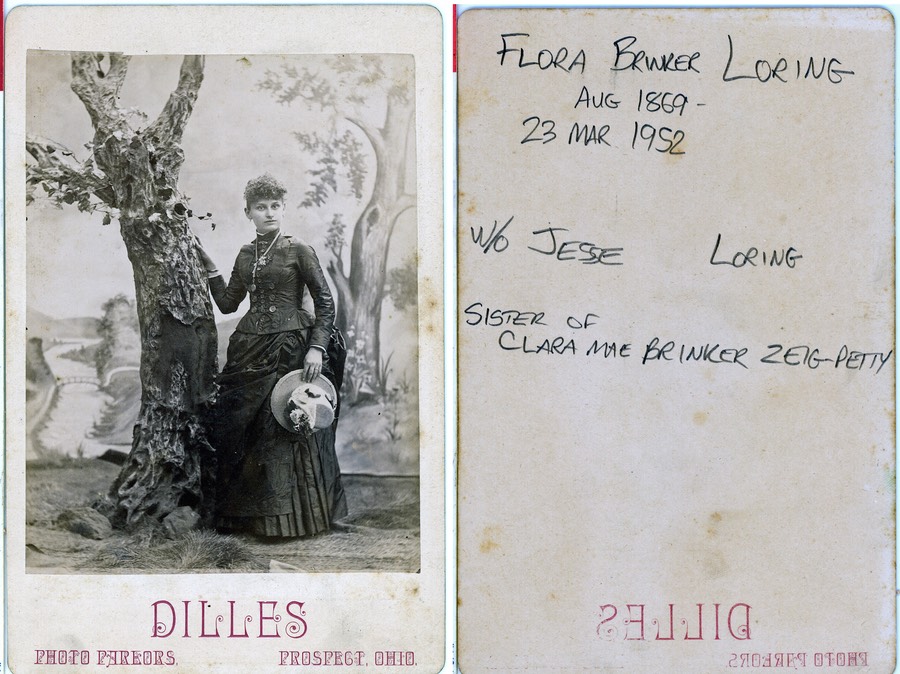 DILLES
PHOTO PARLORS.
PROSPECT, OHIO.
FLORA BRINKER LORING
AUG 1869 -
23 MAR 1952
W/O JESSE LORING
SISTER OF
CLARA MAE BRINKER ZEIG-PETTY
DILLES
PHOTO PARLORS